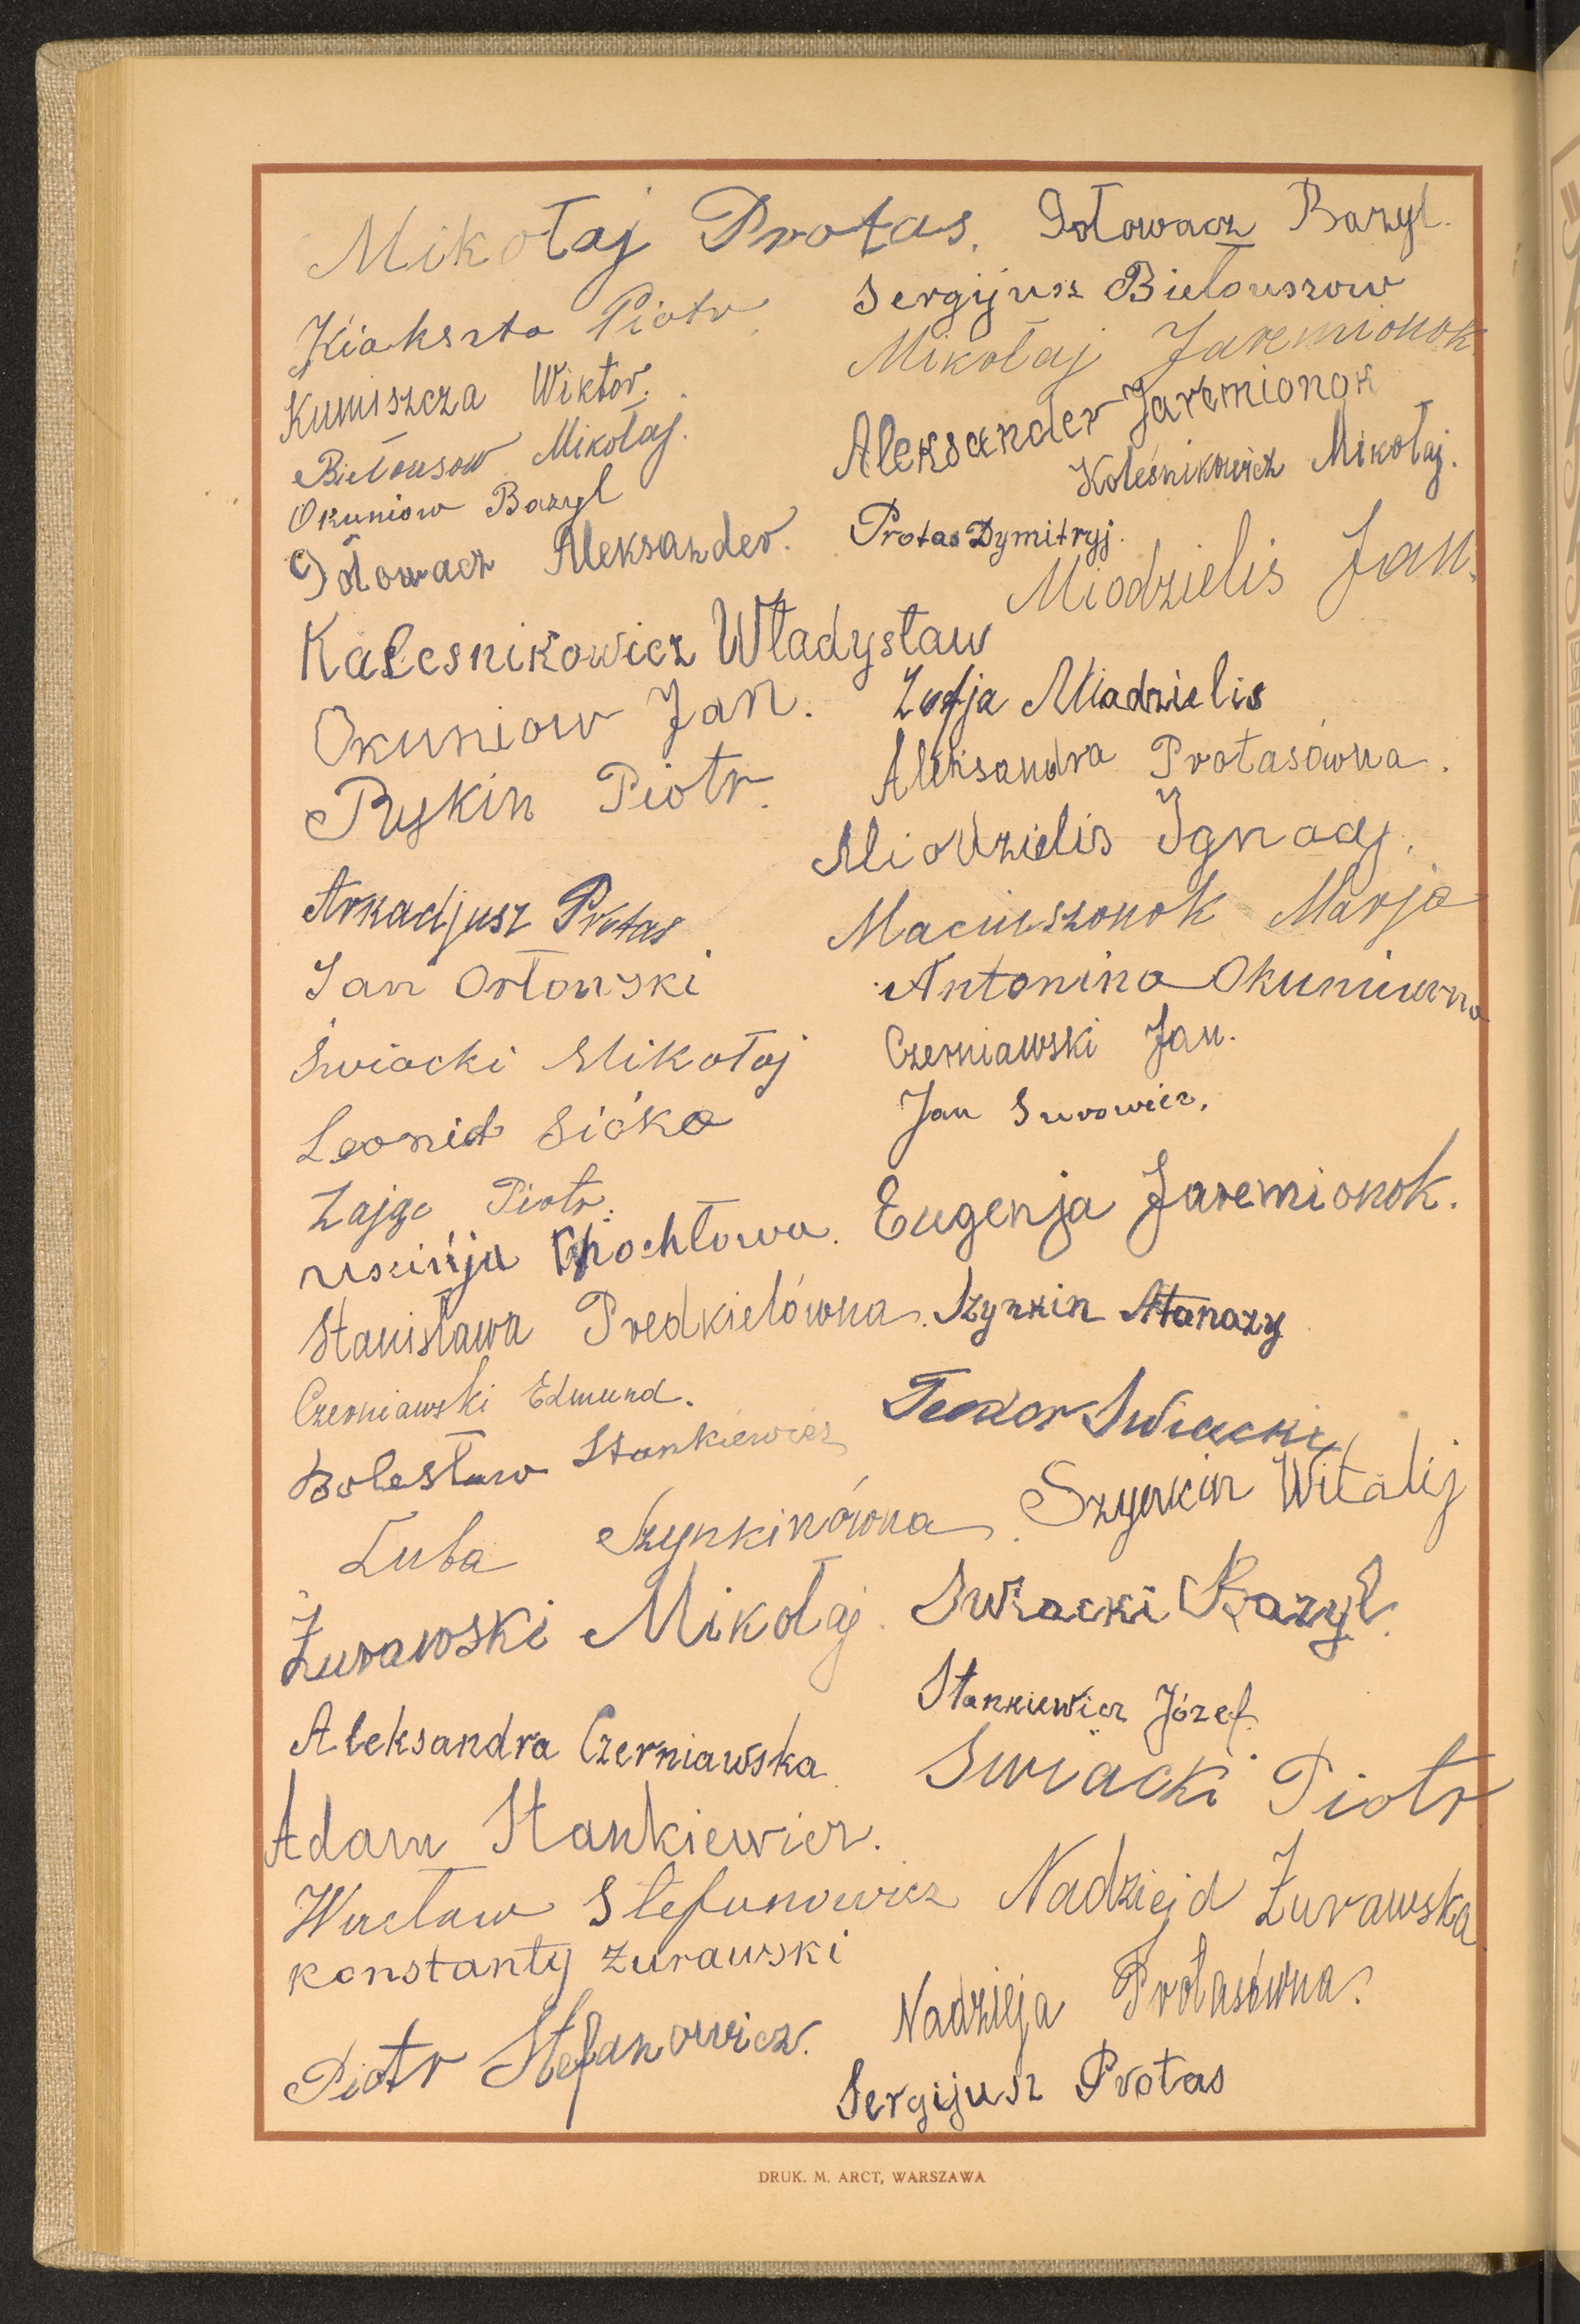 Mikołaj Protas.
Kiakszto Piotr
Kuniszcza Wiktor.
Biełousow Mikołaj.
Okuniow Bazyl
Gołowacz Aleksander.
Kalesnikowicz Władysław
Okuniow Jan.
Ryskin Piotr.
Arkadjusz Protas
Jan Orłowski
Świacki Mikołaj
Leonid Sićko
Zajgo Piotr.
Stanisława Predkielówna.
Czerniawski Edmund.
Bolesław Stankiewicz
Luba Szynkinówna.
Żurawski Mikołaj.
Aleksandra Czerniawska
Adam Stankiewicz.
Wacław Stefanowicz
Konstanty Żurawski
Piotr Stefanowicz.
Gołowacz Bazyl.
Sergijusz Biełouszow
Mikołaj Jaremionok.
Aleksander Jaremionok
Koleśnikowicz Mikołaj.
Protas Dymitryj.
Miodzielis Jan.
Zofja Miadzielis
Aleksandra Protasówna.
Miodzielis Ignacy.
Maciuszonok Marja
Antonina Okuniowna
Czerniawski Jan.
Jan Surowiec.
Eugenja Jaremionok.
Szynkin Atanazy
Teodor Swiacki
Szynkin Witalij
Swiacki Bazyl.
Stankiewicz Józef.
Swiacki Piotr
Nadziejd Żurawska
Nadzieja Protasówna.
Sergijusz Protas
DRUK. M. ARCT, WARSZAWA